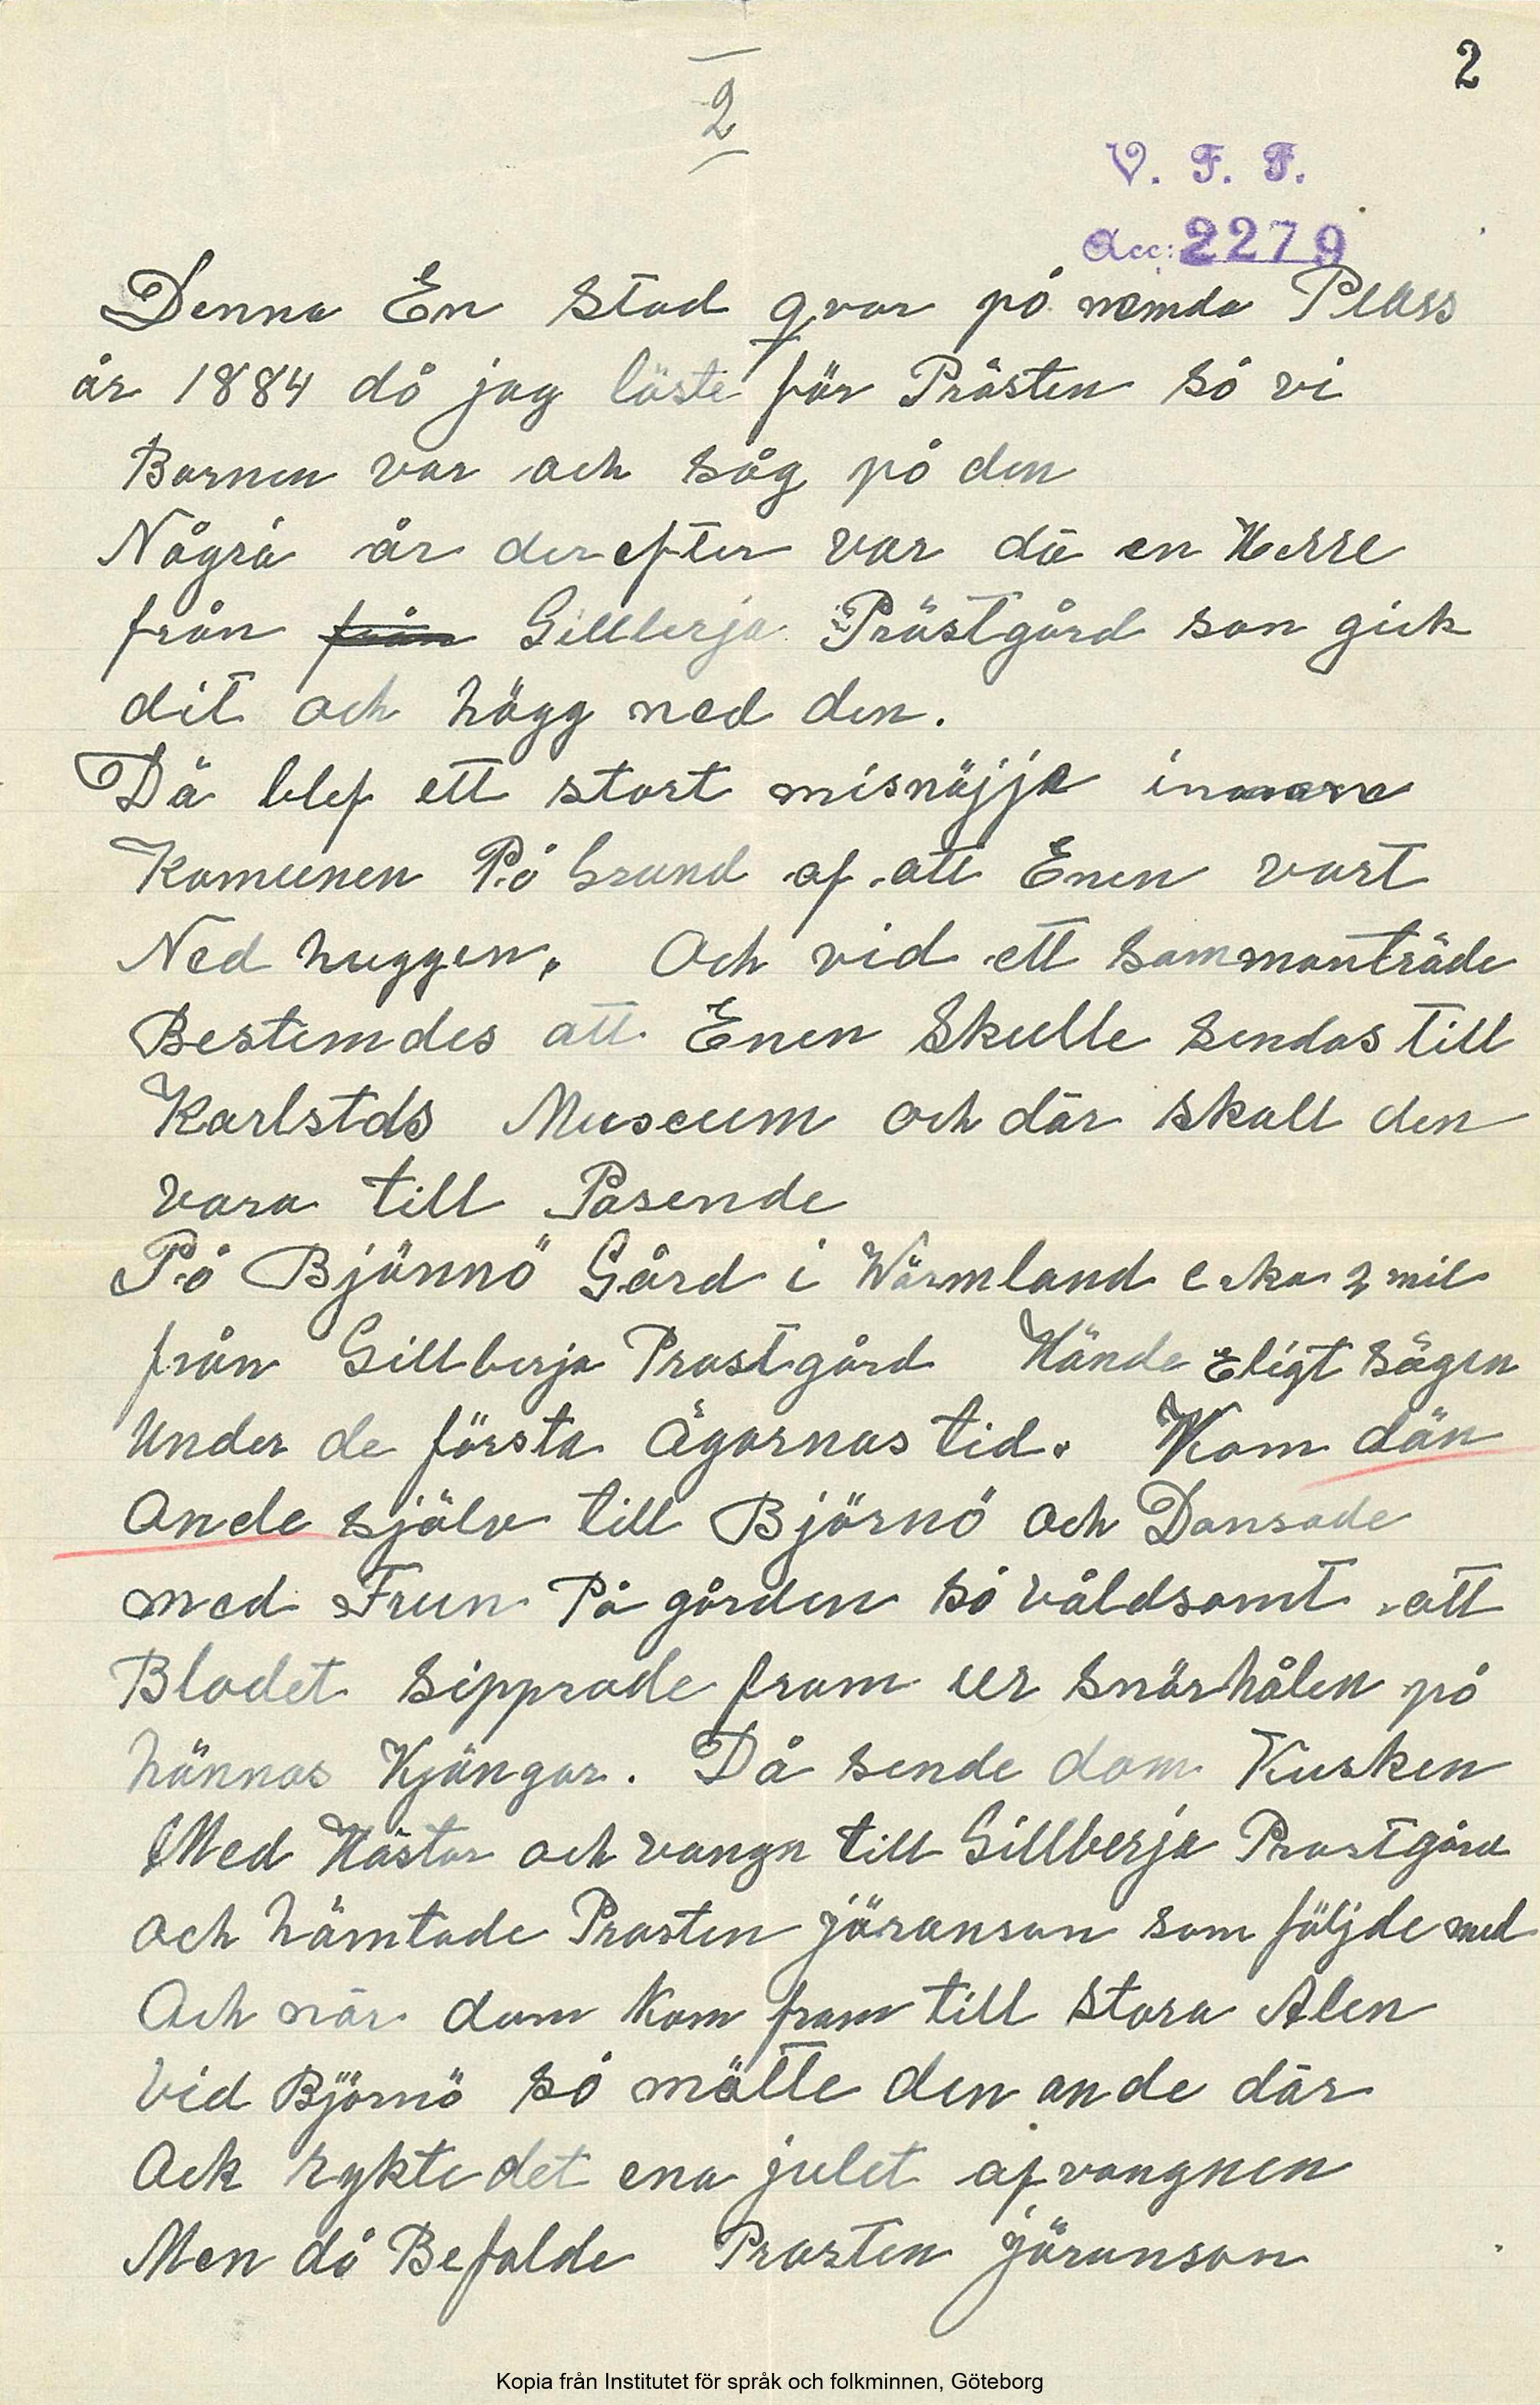 2
2
V. F. F.
Acc: 2279
Denna En stod qvar på nemda Plass
år 1884 då jag läste för Prästen så vi
Barnen var och såg på den
Några år der efter var dä en Herre
från från Gillberja Prästgård som gick
dit och högg ned den.
Dä blef ett stort misnöjje inom
Komunen På Grund af att Enen vart
Ned huggen. Och vid ett sammanträde
Bestemdes att Enen skulle sendas till
Karlstds Museum och där skall den
vara till Pasende
På Bjönnö Gård i Wärmland cika 2 mil
från Gillberja Prostgård Hände Eligt sägen
Under de första Ägarnas tid. Kom dän
Onde själv till Björnö och Dansade
med Frun På gården så våldsamt att
Blodet sipprade fram ur snörhålen på
hännas Kjängar. Då sende dom Kusken
Med Hästar och vangn till Gillberja Prostgård
och hämtade Prosten jöranson som följde med
Och när dom kom fram till stora Alen
vid Björnö så mötte den onde där
Ock rykte det ena julet af vangnen
Men då Befalde Prosten jöranson
Kopia från Institutet för språk och folkminnen, Göteborg